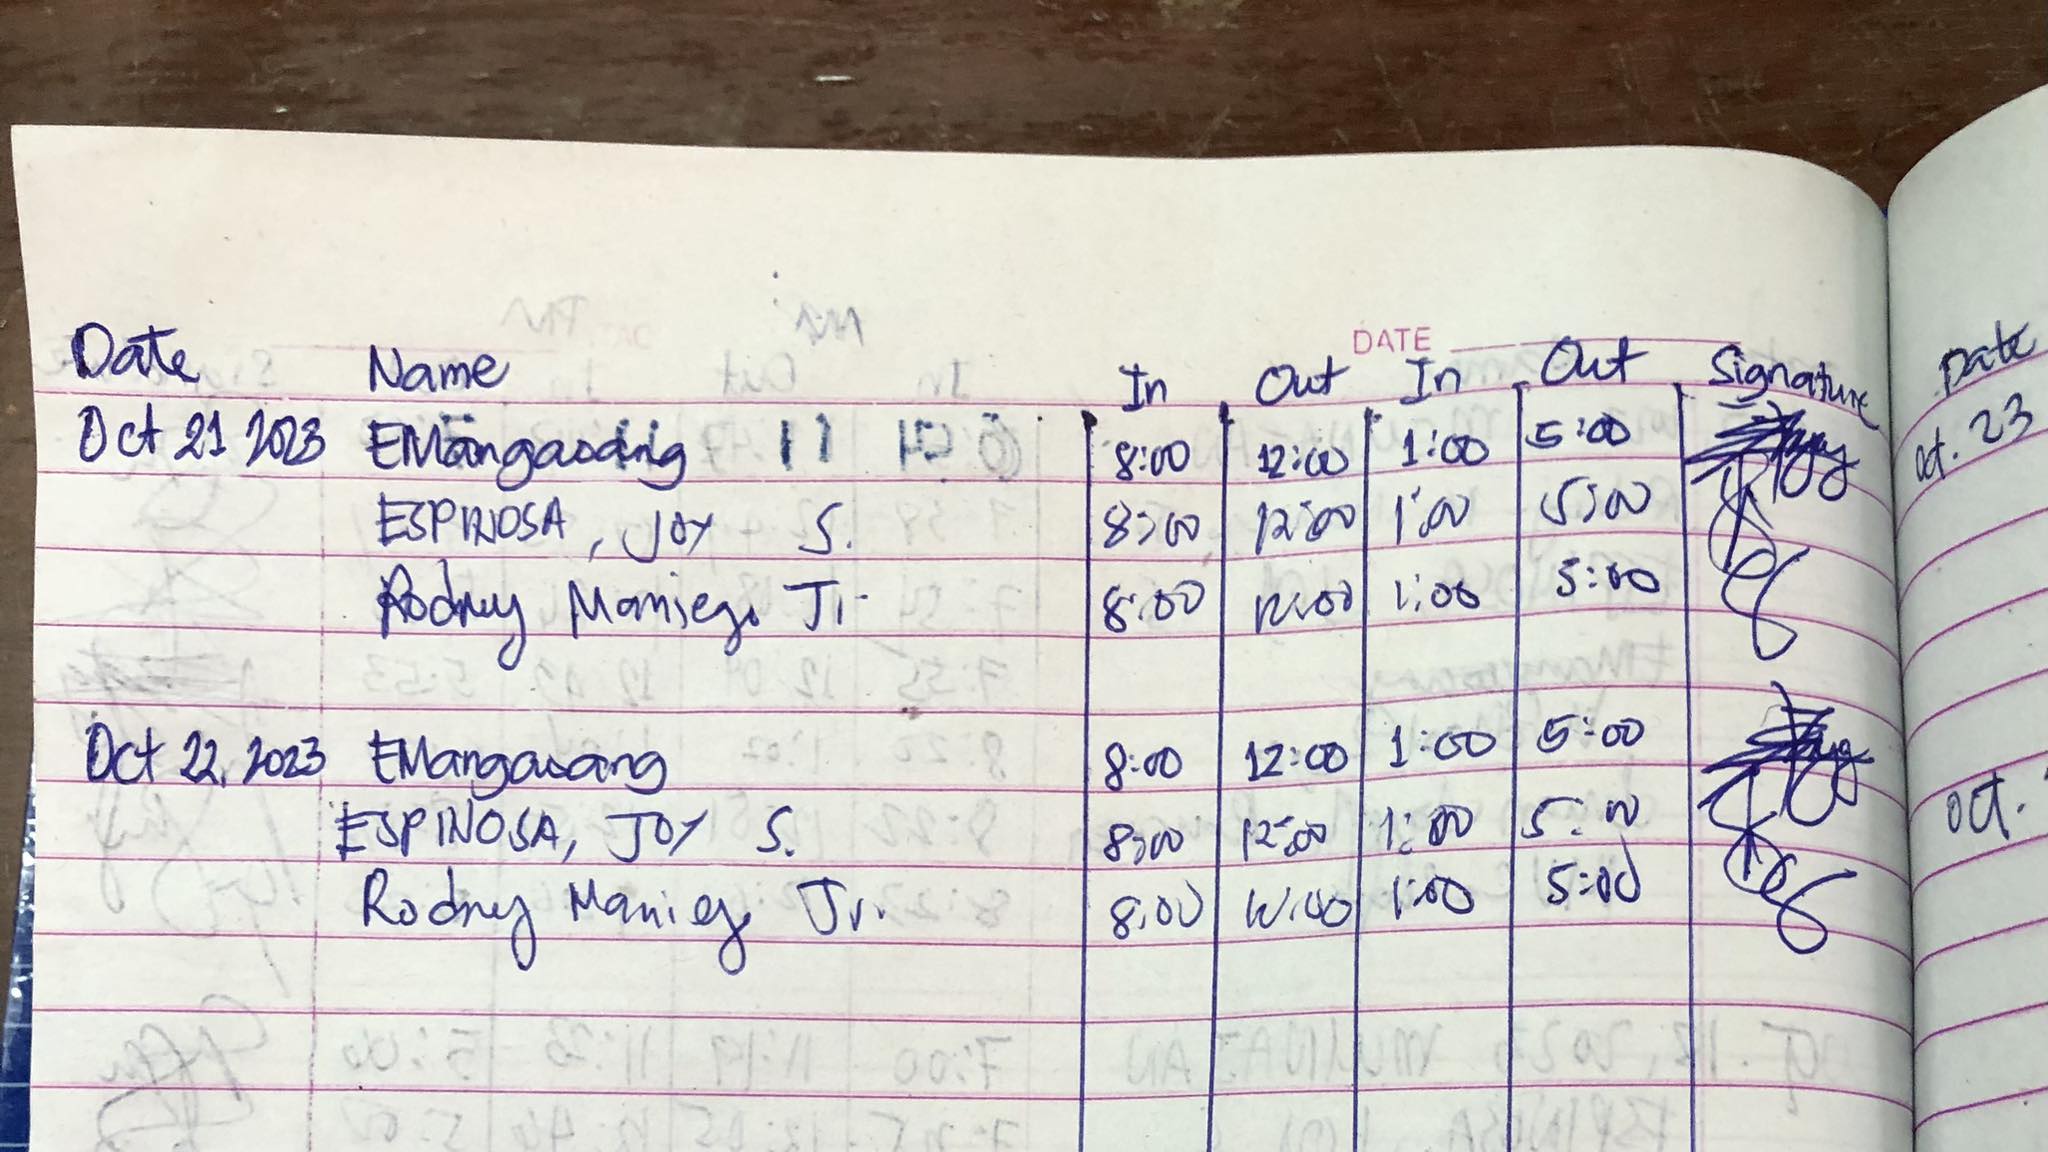 DATE
Date Name In Out In Out Signature
Oct 21 2023 EMangaoang 8:00 12:00 1:00 5:00
ESPINOSA, JOY S. 8:00 12:00 1:00 5:00
Rodney Maniego Jr. 8:00 12:00 1:00 5:00
Oct 22, 2023 EMangaoang 8:00 12:00 1:00 5:00
ESPINOSA, JOY S. 8:00 12:00 1:00 5:00
Rodney Maniego Jr. 8:00 12:00 1:00 5:00
Date
Oct. 23
Oct.